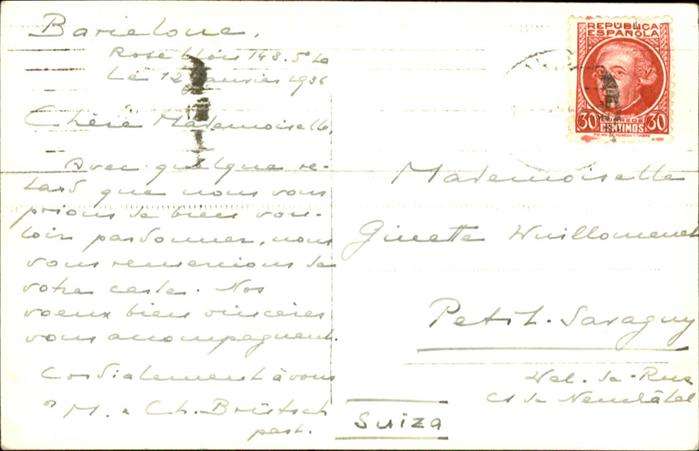 Barcelone,
Rosellón 148. 5º
Le 12 janvier 1936
Chère Mademoiselle
Avec quelque re-
tard que nous vous
prions de bien vou-
loir pardonner, nous
vous remercions de
votre carte. Nos
voeux bien sincères
vous accompagnent.
Cordialement à vous
M. & Ch. Brütsch
past.
REPÚBLICA
ESPAÑOLA
30 CENTIMOS 30
Mademoiselle
Ginette Wuilloment
Petit-Savagny
Val-de-Ruz
Ct de Neuchâtel
Suiza